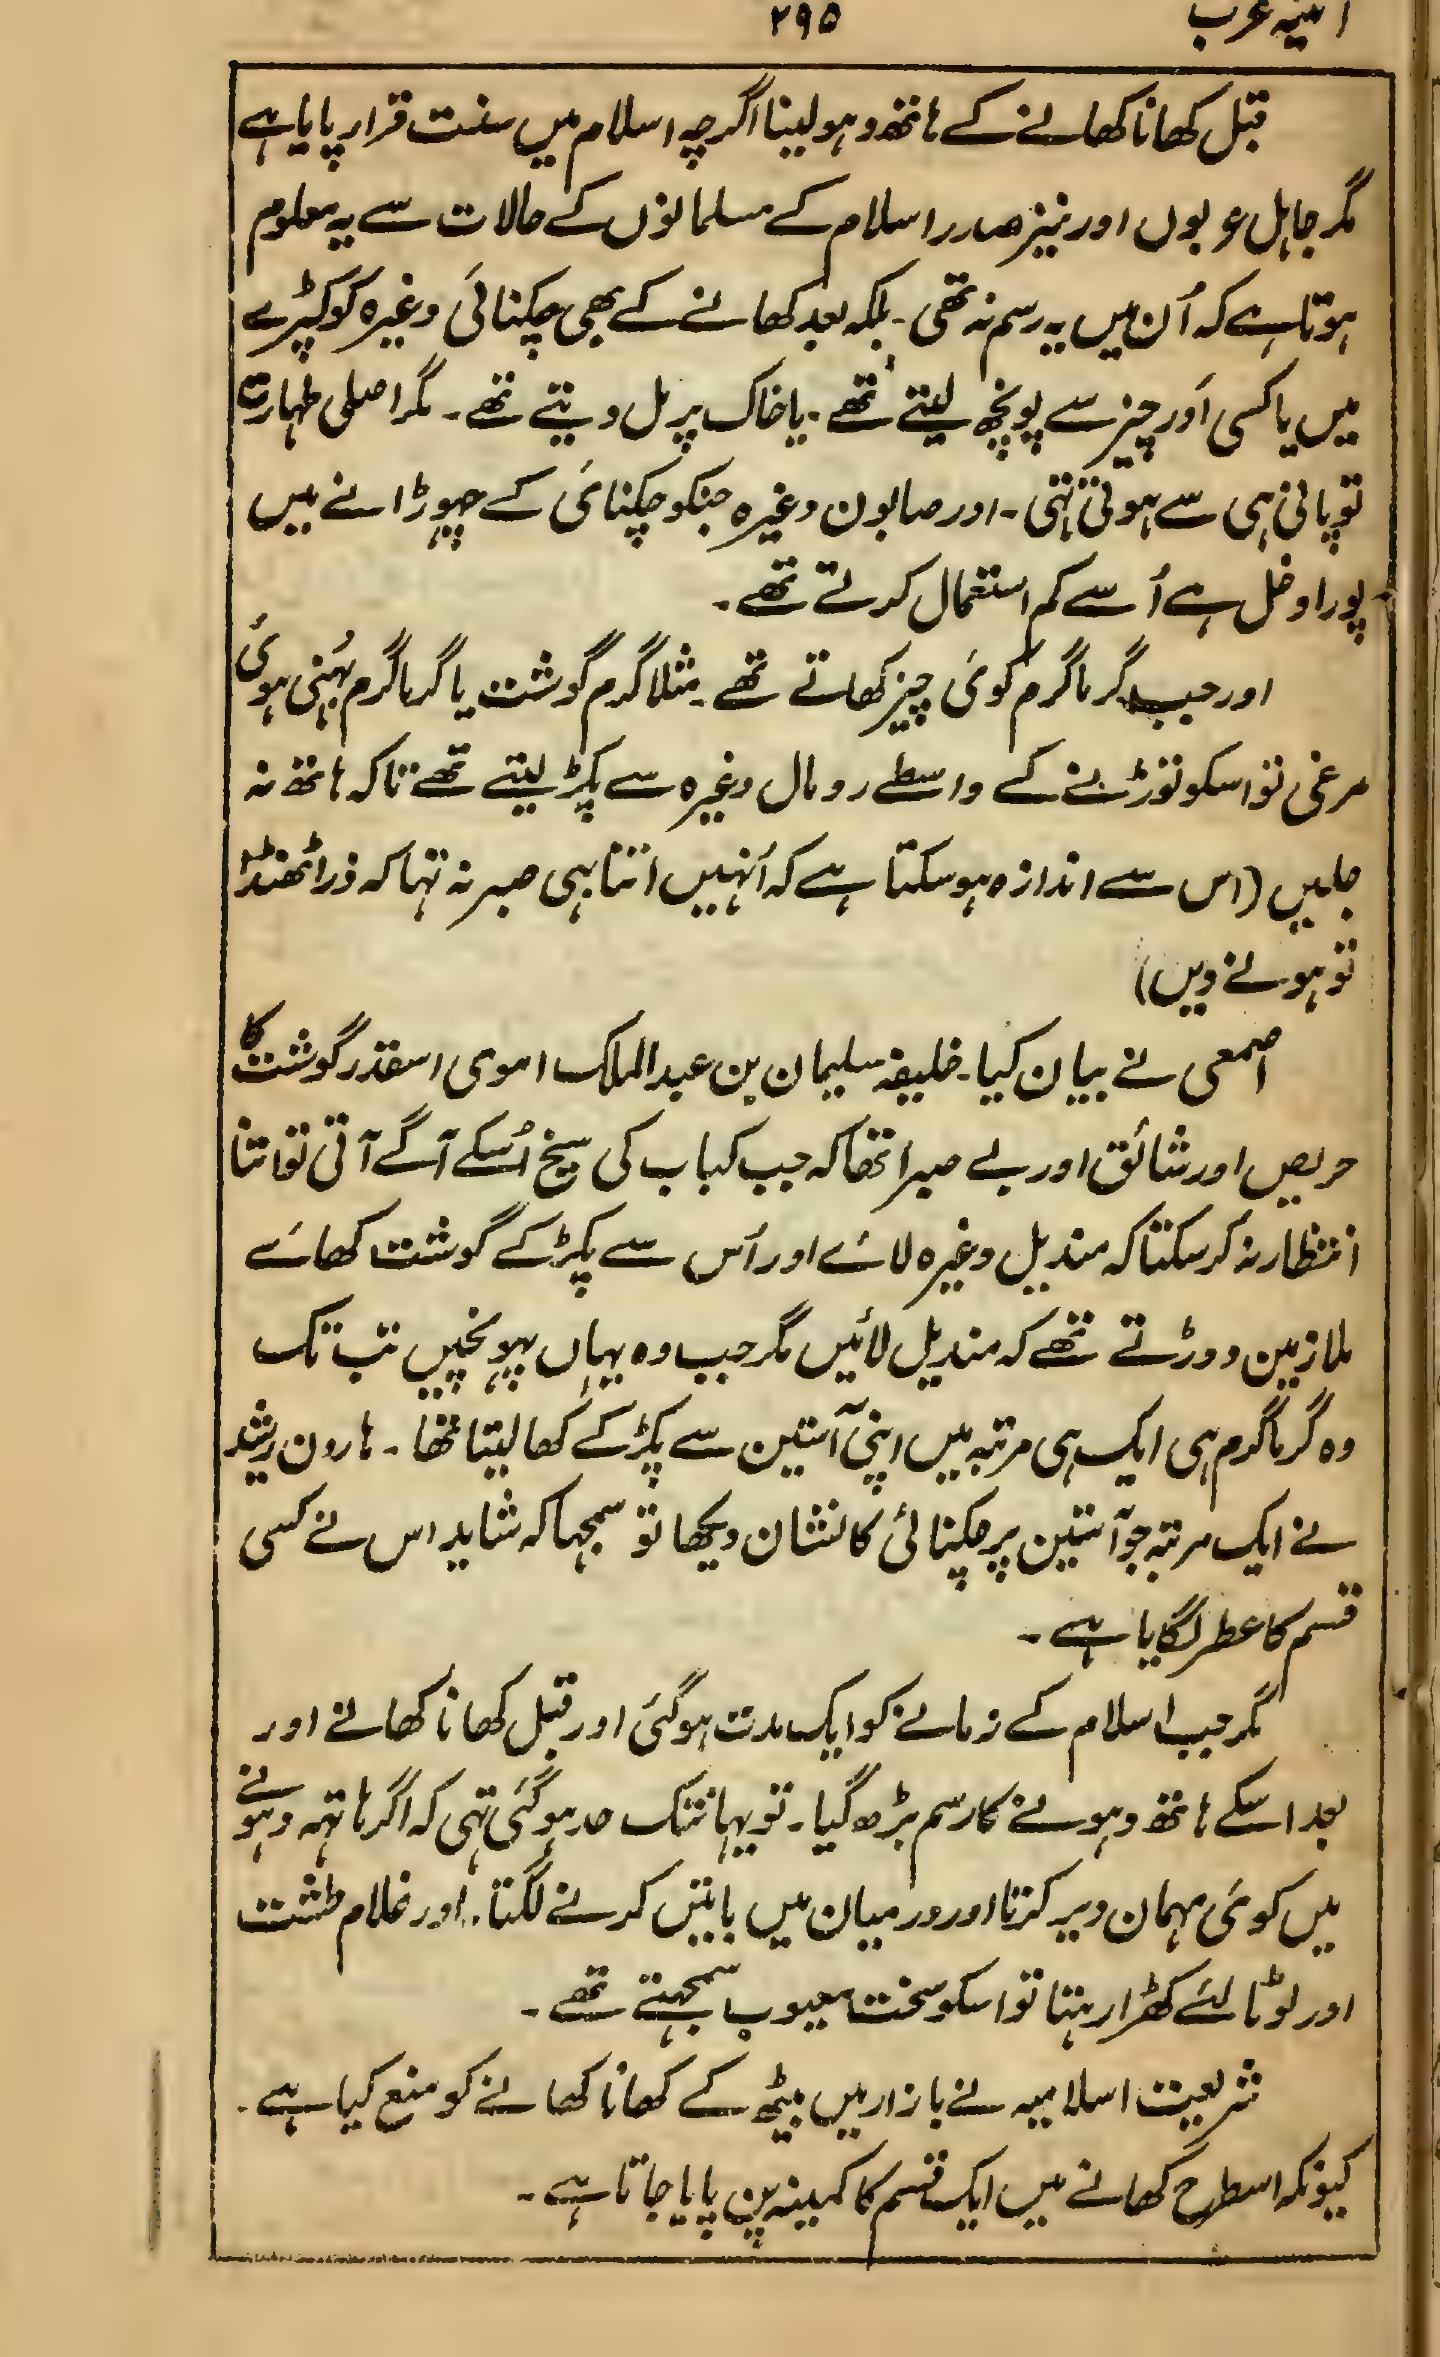 آئینہ عرب
۲۹۵
قبل کھانا کھانے کے ہاتھ دہو لینا اگرچہ اسلام میں سنت قرار پایا ہے
مگر جاہل عربوں اور نیز صدر اسلام کے مسلمانوں کے حالات سے یہ معلوم
ہوتا ہے کہ اُن میں یہ رسم نہ تھی ۔ بلکہ بعد کھانے کے بھی چکنائی وغیرہ کو کپڑے
میں یا کسی اَور چیز سے پونچھ لیتے تھے ۔ یا خاک پر مل دیتے تھے ۔ مگر اصلی طہارت
تو پانی ہی سے ہوتی تہی ۔ اور صابون وغیرہ جنکو چکنائی کے چہوڑانے میں
پورا دخل ہے اُسے کم استعمال کرتے تھے ۔
اور جب گرما گرم کوئی چیز کھاتے تھے ۔ مثلا گرم گوشت یا گرما گرم بُہنی ہوئی
مرغی تو اسکو توڑنے کے واسطے رومال وغیرہ سے پکڑ لیتے تھے تاکہ ہاتھ نہ
جلیں (اس سے اندازہ ہو سکتا ہے کہ اُنہیں اتنا ہی صبر نہ تہا کہ ذرا ٹھنڈا
تو ہونے دیں)
اصمعی نے بیان کیا ۔ خلیفہ سلیمان بن عبد الملک اموی اسقدر گوشت کا
حریص اور شائق اور بے صبرا تھا کہ جب کباب کی سیخ اُسکے آگے آتی تو اتنا
انتظار نہ کر سکتا کہ مندیل وغیرہ لائے اور اُس سے پکڑ کے گوشت کھائے
ملازمین دوڑتے تھے کہ مندیل لائیں مگر جب وہ یہاں پہونچیں تب تک
وہ گرما گرم ہی ایک ہی مرتبہ میں اپنی آستین سے پکڑ کے کھا لیتا تھا ۔ ہارون رشید
نے ایک مرتبہ جو آستین پر چکنائی کا نشان دیکھا تو سمجہا کہ شاید اس نے کسی
قسم کا عطر لگایا ہے ۔
مگر جب اسلام کے زمانے کو ایک مدت ہوگئی اور قبل کھانا کھانے اور
بعد اسکے ہاتھ دہونے کا رسم بڑھ گیا ۔ تو یہانتک حد ہوگئی تہی کہ اگر ہاتہہ دہونے
میں کوئی مہمان دیر کرتا اور درمیان میں باتیں کرنے لگتا ۔ اور غلام طشت
اور لوٹا لئے کھڑا رہتا تو اسکو سخت معیوب سمجہتے تھے ۔
شریعت اسلامیہ نے بازار میں بیٹھ کے کھانا کھانے کو منع کیا ہے ۔
کیونکہ اسطرح کھانے میں ایک قسم کا کمینہ پن پایا جاتا ہے ۔